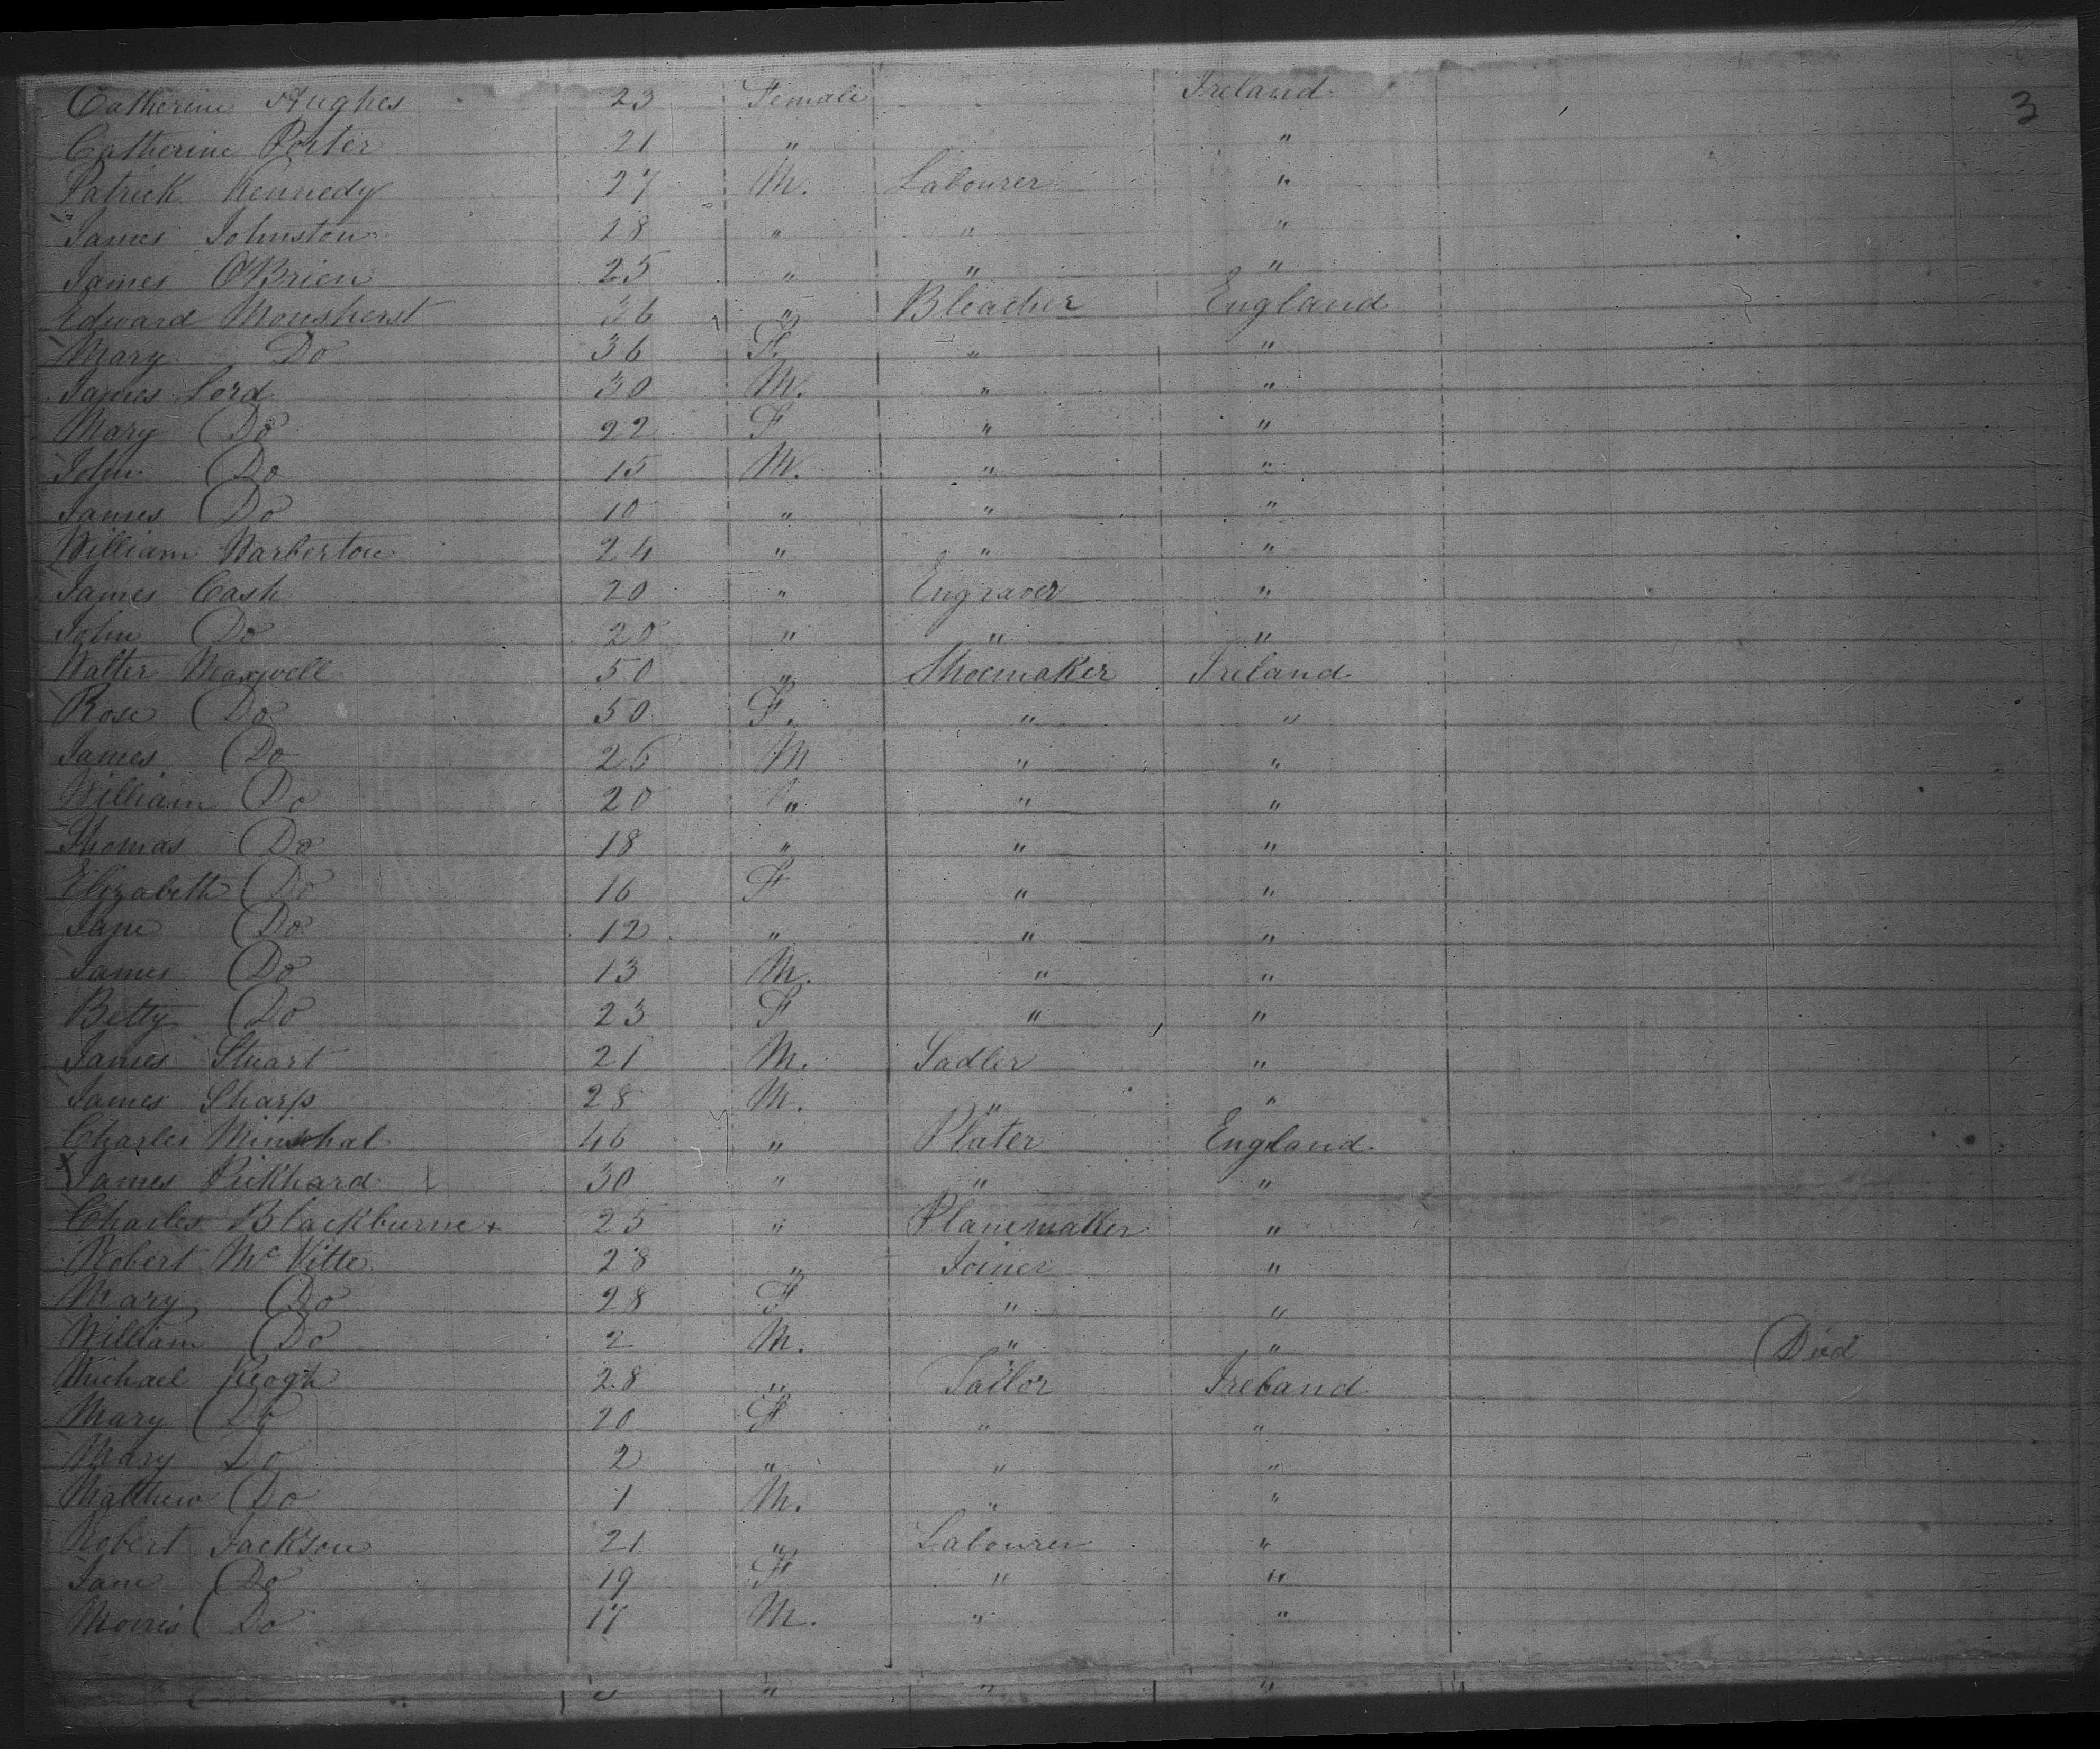 Catherine Hughes 23 Female Ireland 3
Catherine Porter 21 " "
Patrick Kennedy 27 M. Labourer "
James Johnston 18 " " "
James O'Brien 25 " " "
Edward Monsherst 36 " Bleacher England
Mary Do 36 F. " "
James Lord 30 M. " "
Mary Do 22 F " "
John Do 15 M. " "
James Do 10 " " "
William Warberton 24 " " "
James Cash 20 " Engraver "
John Do 20 " " "
Walter Maxwell 50 " Shoemaker Ireland
Rose Do 50 F. " "
James Do 25 M " "
William Do 20 " " "
Thomas Do 18 " " "
Elizabeth Do 16 F " "
Jane Do 12 " " "
James Do 13 M. " "
Betty Do 23 F " "
James Stuart 21 M. Sadler "
James Sharp 28 M. " "
Charles Minshal 46 " Plater England
James Pickhard 30 " " "
Charles Blackburne + 25 " Planemaker "
Robert McVitte 28 " Joiner "
Mary Do 28 F " "
William Do 2 M. " " Died
Michael Keogh 28 " Tailor Ireland
Mary Do 20 F " "
Mary Do 2 " " "
Matthew Do 1 M. " "
Robert Jackson 21 " Labourer "
Jane Do 19 F " "
Morris Do 17 M. " "
" " "